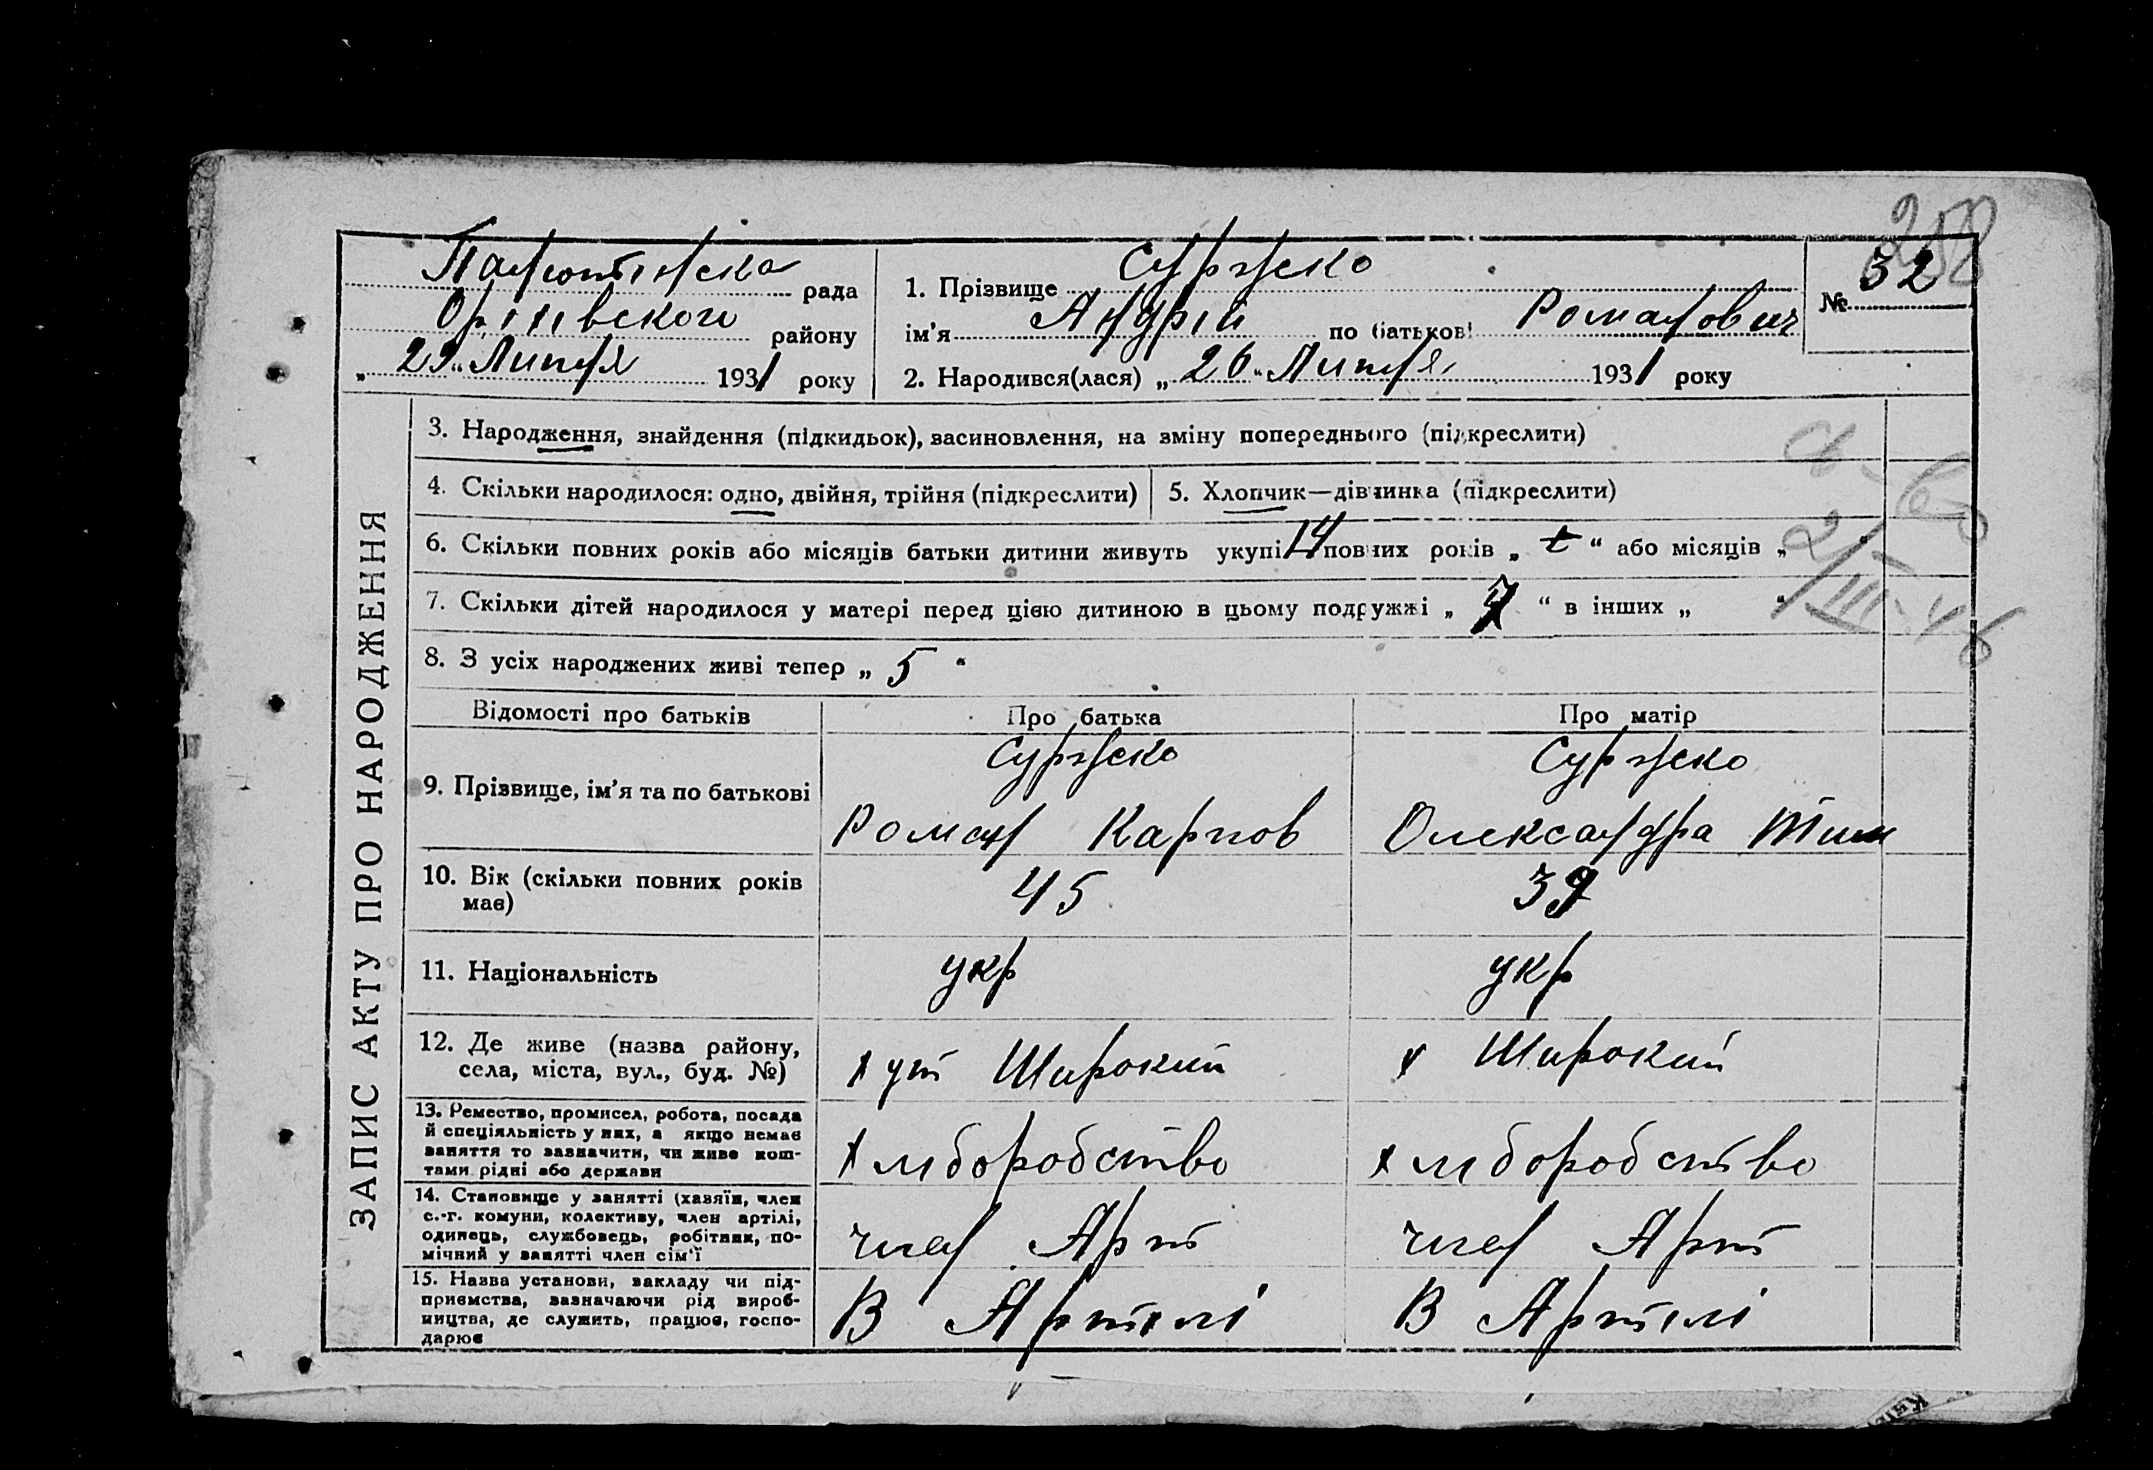 рада
Оріхівського району
„29“ Липня 1931 року
1. Прізвище Сургуско
ім’я Андрій по батькові Романович
2. Народився(лася) „26“ Липня 1931 року
№ 32
ЗАПИС АКТУ ПРО НАРОДЖЕННЯ
3. Народження, знайдення (підкидьок), засиновлення, на зміну попереднього (підкреслити)
4. Скільки народилося: одно, двійня, трійня (підкреслити)
5. Хлопчик—дівчинка (підкреслити)
6. Скільки повних років або місяців батьки дитини живуть укупі 14 повних років „ “ або місяців „ “
7. Скільки дітей народилося у матері перед цією дитиною в цьому подружжі „ “ в інших „ “
8. З усіх народжених живі тепер „ 5 “
Відомості про батьків
Про батька
Про матір
9. Прізвище, ім’я та по батькові
Роман Карпов
Олександра Тим
10. Вік (скільки повних років
має)
45
39
11. Національність
укр
укр
12. Де живе (назва району,
села, міста, вул., буд. №)
хут Широкий
х Широкий
13. Ремество, промисел, робота, посада
й спеціяльність у них, а якщо немає
заняття то зазначити, чи живе кош-
тами рідні або держави
хліборобство
хліборобство
14. Становище у занятті (хазяїн, член
с.-г. комуни, колективу, член артілі,
одинець, службовець, робітник, по-
мічний у занятті член сім’ї
член Арт
член Арт
15. Назва установи, закладу чи під-
приємства, зазначаючи рід вироб-
ництва, де служить, працює, госпо-
дарює
В Артілі
В Артілі